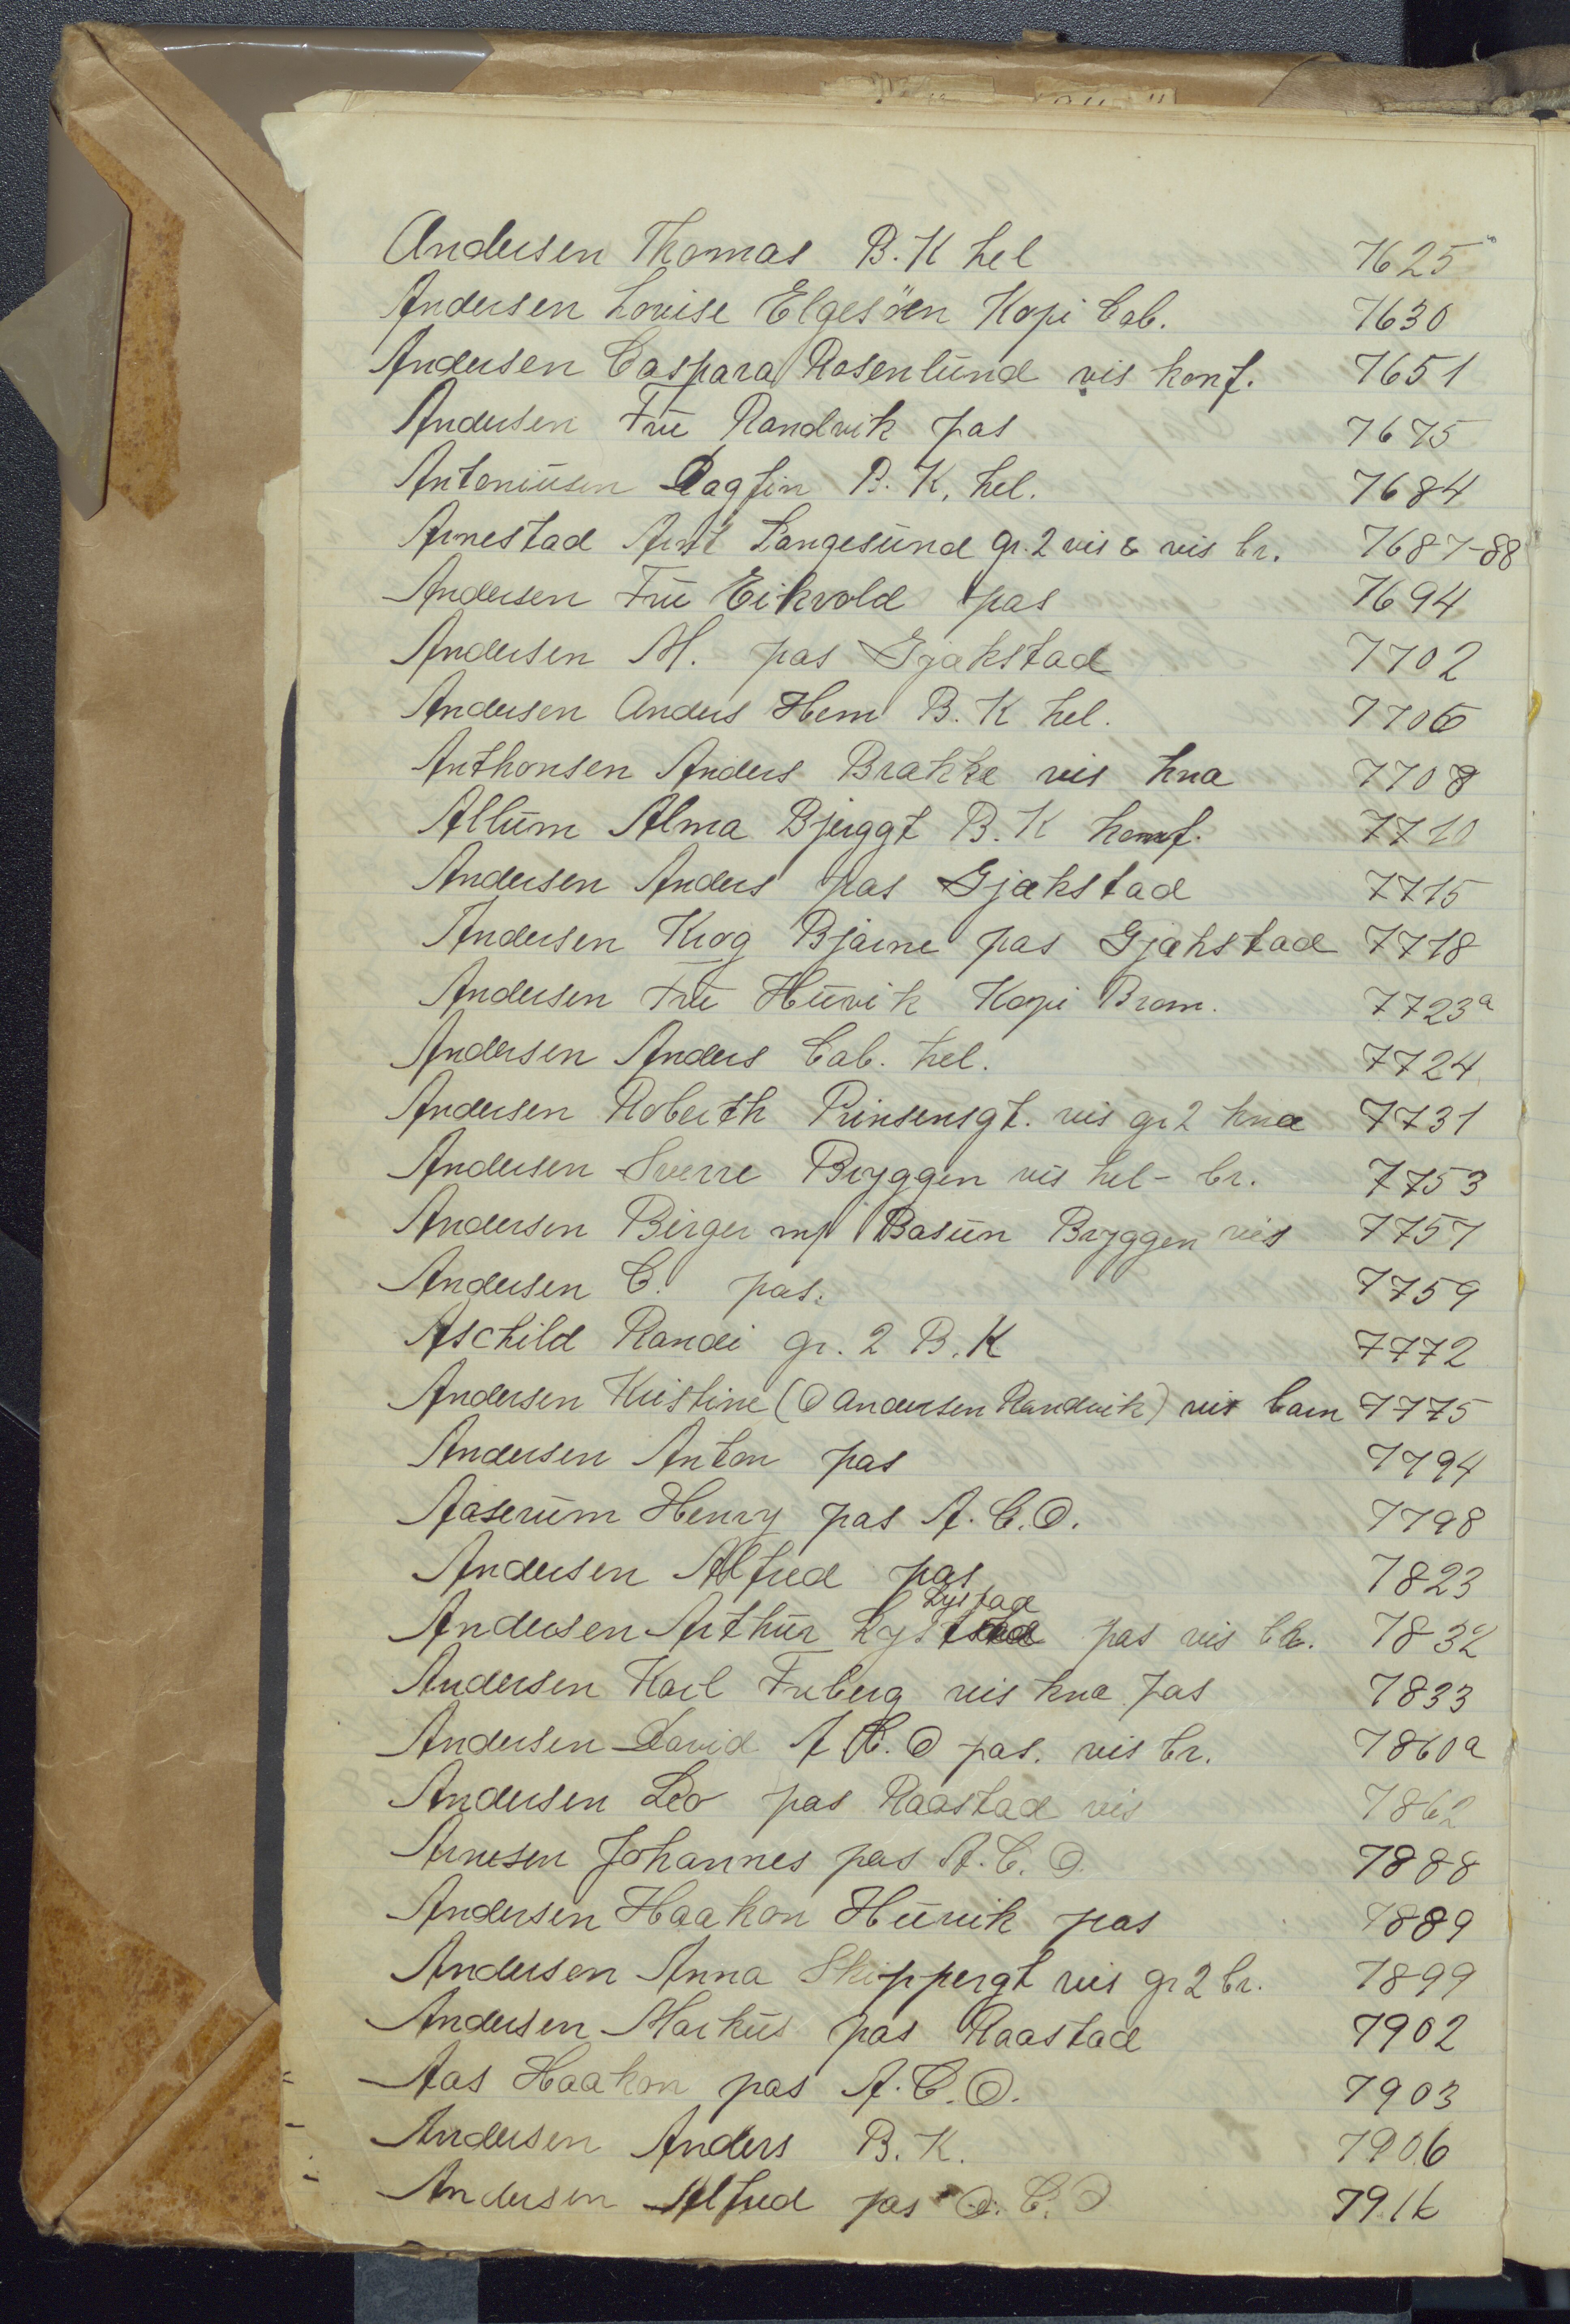 Andersen Thomas B.K hel 7625
Andersen Lovise Elgesöen Kopi Cab. 7630
Andersen Caspara Rosenlund vis konf. 7651
Andersen Frü Randvik pas 7675
Antoniüsen Dagfin B.K, hel. 7684
Arnestad Arnt Langesünd gr. 2 vis & vis br. 7687-88
Andersen Frü Eikvold pas 7694
Andersen M. pas Gjakstad 7702
Andersen Anders Hem B.K hel. 7706
Anthonsen Anders Brakke vis kna 7708
Allüm Alma Bjerggt B.K konf. 7710
Andersen Anders pas Gjakstad 7715
Andersen Krog Bjarne pas Gjakstad 7718
Andersen Frü Hüvik Kopi Brom. 7723a
Andersen Anders Cab. hel. 7724
Andersen Roberth Prinsensgt. vis gr 2 kna 7731
Andersen Sverre Bryggen vis hel- br. 7753
Andersen Birger m/ Basün Bryggen vis 7757
Andersen C. pas. 7759
Aschild Randi gr. 2 B.K 7772
Andersen Kristine (O Andersen Randvik) vis barn 7775
Andersen Anton pas 7794
Aaserüm Henry pas A.C.O. 7798
Andersen Alfred pas 7823
Lystad
Andersen Arthür Lystad pas vis br. 7832
Andersen Karl Friberg vis kna pas 7833
Andersen David A C.O pas. vis br. 7860a
Andersen Leo pas Raastad vis 7862
Arnesen Johannes pas A.C.O 7888
Andersen Haakon Hüvik pas 7889
Andersen Anna Skippergt vis gr 2 br. 7899
Andersen Marküs pas Raastad 7902
Aas Haakon pas A.C.O. 7903
Andersen Anders B.K. 7906
Andersen Alfred pas C.O 7916